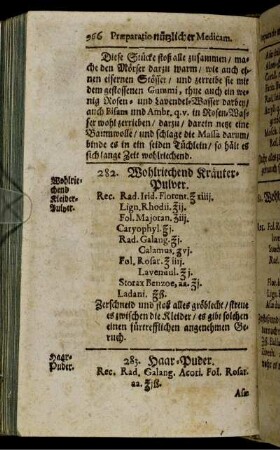 966 Præparatio nützlicher Medicam.
Diese Stücke stoß alle zusammen / ma-
che den Mörser darzu warm / wie auch ei-
nen eisernen Stösser / und zerreibe sie mit
dem gestossenen Gummi, thue auch ein we-
nig Rosen- und Lavendel-Wasser darbey /
auch Bisam und Ambr, q.v. in Rosen-Was-
ser wohl zerrieben / darzu / darein netze eine
Baumwolle / und schlage die Massa darum /
binde es in ein seiden Tüchlein / so hält es
sich lange Zeit wohlriechend.
Wohlrie-
chend
Kleider-
Pulver.
282. Wohlriechend Kräuter-
Pulver.
Rec. Rad. Irid. Florent. ℥ xiiij.
Lign. Rhodii. ℥ij.
Fol. Majoran. ℥iij.
Caryophyl. ℥j.
Rad. Galang. ℥j.
Calamus, ℥vj.
Fol. Rosar. ℥ iiij.
Lavendul. ℥j.
Storax Benzoe, aa. ℥j.
Ladani. ℥ß.
Zerschneid und stoß alles gröblecht / streue
es zwischen die Kleider / es gibt solchen
einen fürtrefflichen angenehmen Ge-
ruch.
Haar-
Puder.
283. Haar-Puder.
Rec. Rad. Galang. Acori. Fol. Rosar.
aa. ℥jß.